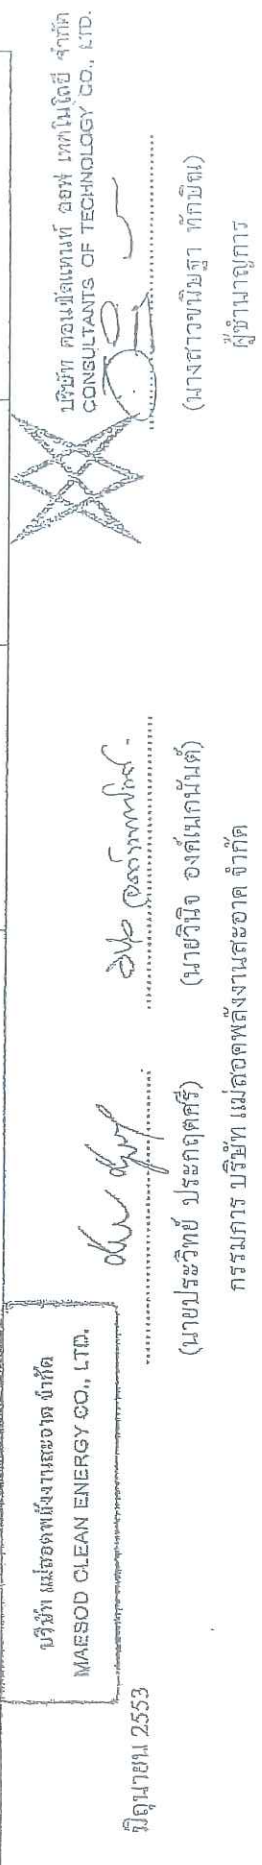 บริษัท แม่สอดพลังงานสะอาด จำกัด
MAESOD CLEAN ENERGY CO., LTD.
มิถุนายน 2553
(นายประวิทย์ ประกฤตศรี)
(นายวินิจ องค์เนกนันต์)
กรรมการ บริษัท แม่สอดพลังงานสะอาด จำกัด
บริษัท คอนซัลแทนท์ ออฟ เทคโนโลยี จำกัด
CONSULTANTS OF TECHNOLOGY CO., LTD.
(นางสาวขนิษฐา ทักษิณ)
ผู้ชำนาญการ